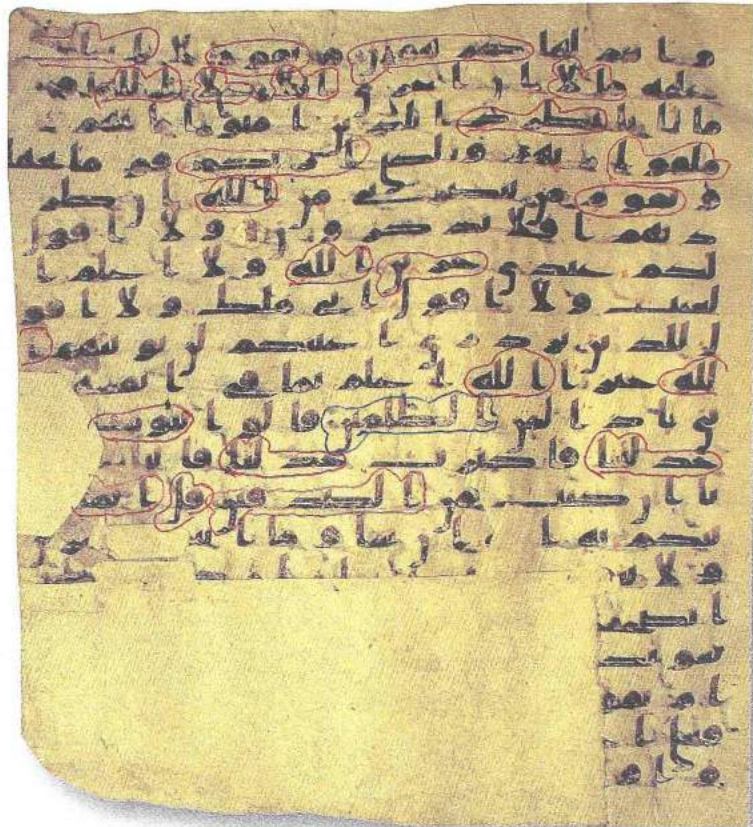 وانتم لها كرهون ويقوم لا اسل
عليه مالا ان اجري الا على الله و
ما انا بطرد الذين امنوا انهم
ملقوا ربهم ولكني اريكم قوما تجهلو
ويقوم من ينصرني من الله ان طر
دتهم افلا تذكرون ولا اقول
لكم عندي خزين الله ولا اعلم ا
لغيب ولا اقول اني ملك ولا اقو
ل للذين تزدري اعينكم لن يوتيهم ا
لله خيرا الله اعلم بما في انفسه
اني اذا لمن الظلمين قالوا ينوح
قد جدلتنا فاكثرت جدلنا فاتنا
ان كنت من الصدقين قال انما
يتيكم به ان شا وما ا
ولا ين
انصح
هو ربك
ام يقو
فعلي ا